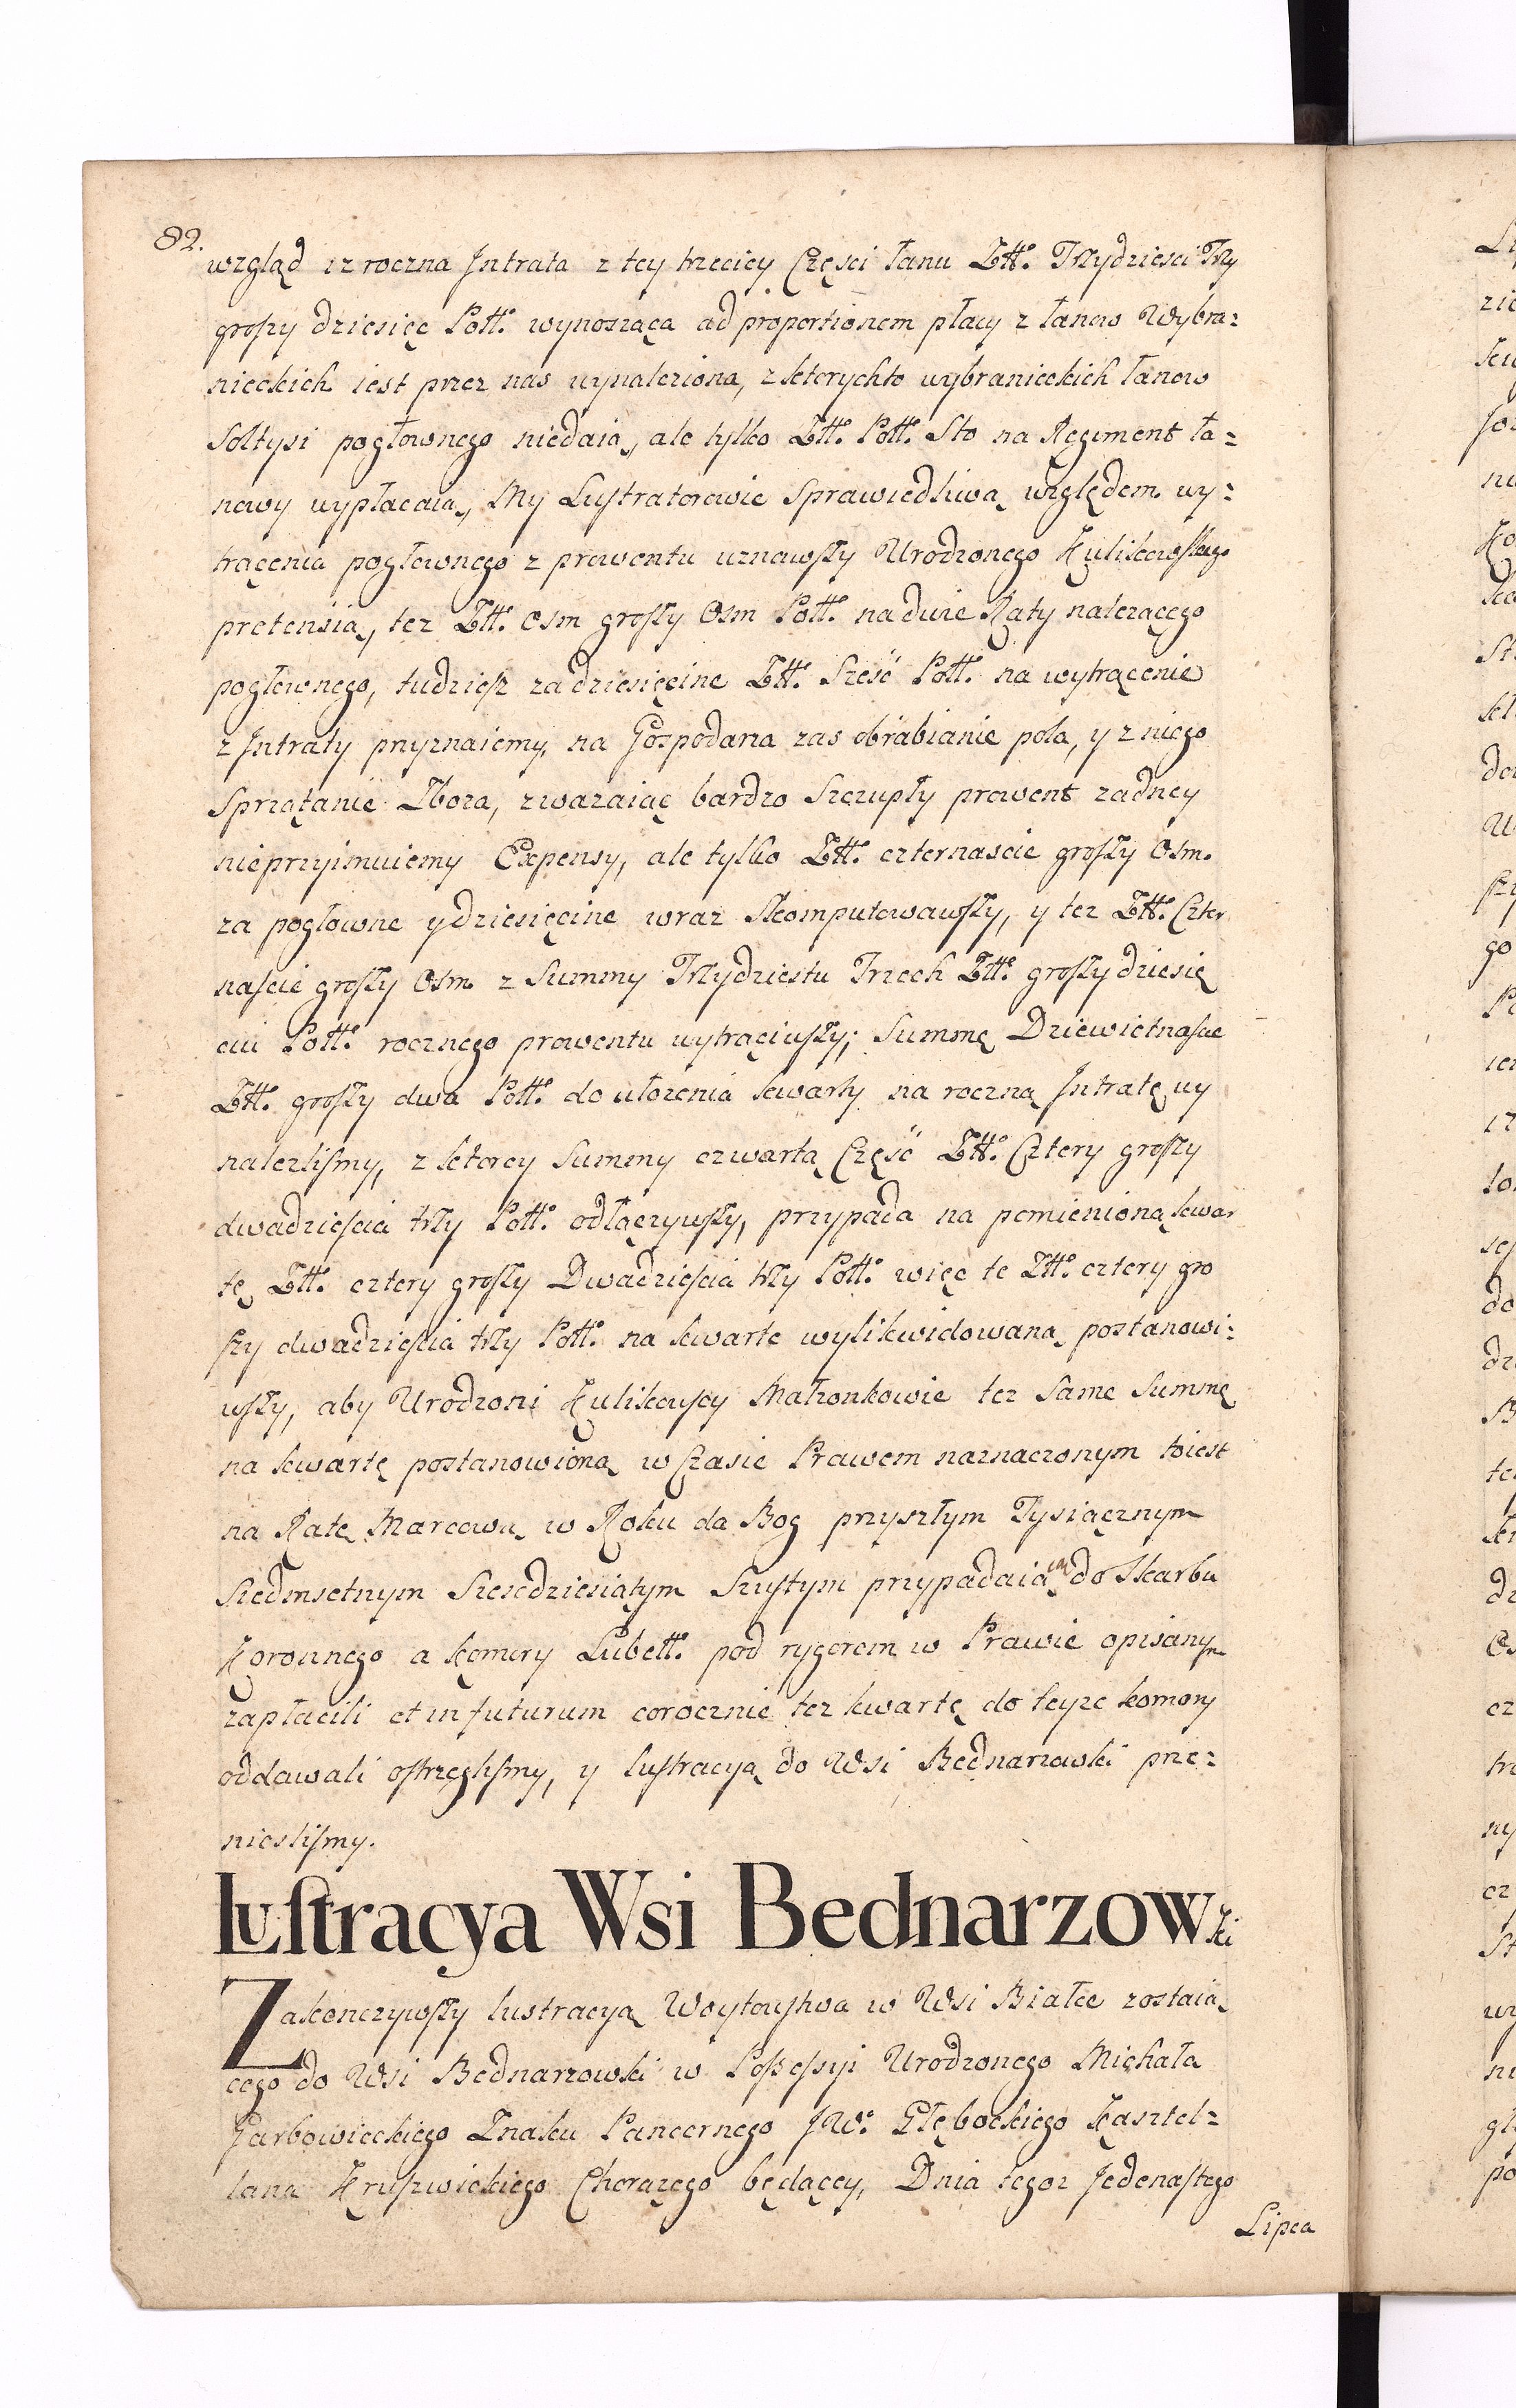 82.
wzgląd iz roczna Jntrata z tey trzeciey Części łanu Złł. Trzydziesci Trzy
groszy dziesięc Poll. wynosząca ad proportionem płacy z łanow Wybra:
nieckich iest przez nas wynaleziona, z ktorychto wybranieckich łanow
Soltysi pogłownego niedaią, ale tylko Złł. Poll. Sto na Regiment ła:
nowy wypłacaią, My Lustratorowie Sprawiedliwą względem wy:
trącenia pogłownego z prowentu uznawszy Urodzonego Kulikowskiego
pretensią, tez Złł. osm groszy Osm Poll. na dwie Raty nalezącego
pogłownego, tudziesz za dziesięcine Złł. Sześć Poll. na wytrącenie
z Jntraty przyznaiemy, na Gospodarza zas obrabianie pola, y z niego
Sprzątanie Zboza, zwazaiąc bardzo Szczupły prowent zadney
nieprzyimuiemy Expensy, ale tylko Złł. czternascie groszy Osm.
za pogłowne y dziesięcine wraz Skomputowawszy, y tez Złł. Czter
nascie groszy Osm z Summy Trzydziestu Trzech Złł. groszy dziesię
ciu Poll. rocznego prowentu wytrąciwszy; Summę Dziewietnascie
Złł. groszy dwa Poll. do ułozenia kwarty na roczną Jntratę wy
nalezlismy, z ktorey Summy czwartą Część Złł. Cztery groszy
dwadziescia trzy Poll. odłączywszy, przypada na pomienioną kwar
tę Złł. cztery groszy Dwadziescia trzy Poll. więc te Złł. cztery gro
szy dwadziescia trzy Poll. na kwarte wylikwidowaną postanowi:
wszy, aby Urodzoni Kulikowscy Małzonkowie tez Same Summę
na kwartę postanowioną w Czasie Prawem naznaczonym toiest
na Ratę Marcową w Roku da Bog przyszłym Tysiącznym
Siedmsetnym Szescdziesiątym Szustym przypadaiącą do Skarbu
Koronnego a Komory Lubell. pod rygorem w Prawie opisanym
zapłacili et in futurum corocznie tez kwartę do teyze komory
oddawali ostrzeglismy, y lustracyą do Wsi Bednarzowki prze:
nieslismy.
Lustracya Wsi Bednarzowki
Zakonczywszy lustracyą Woytowstwa w Wsi Białce zostaią
cego do Wsi Bednarzowki w Possessyi Urodzonego Michała
Garbowieckiego Znaku Pancernego JW. Głębockiego Kasztel:
lana Kruszwickiego Chorązego będącey, Dnia tegoz Jedenastego
Lipca